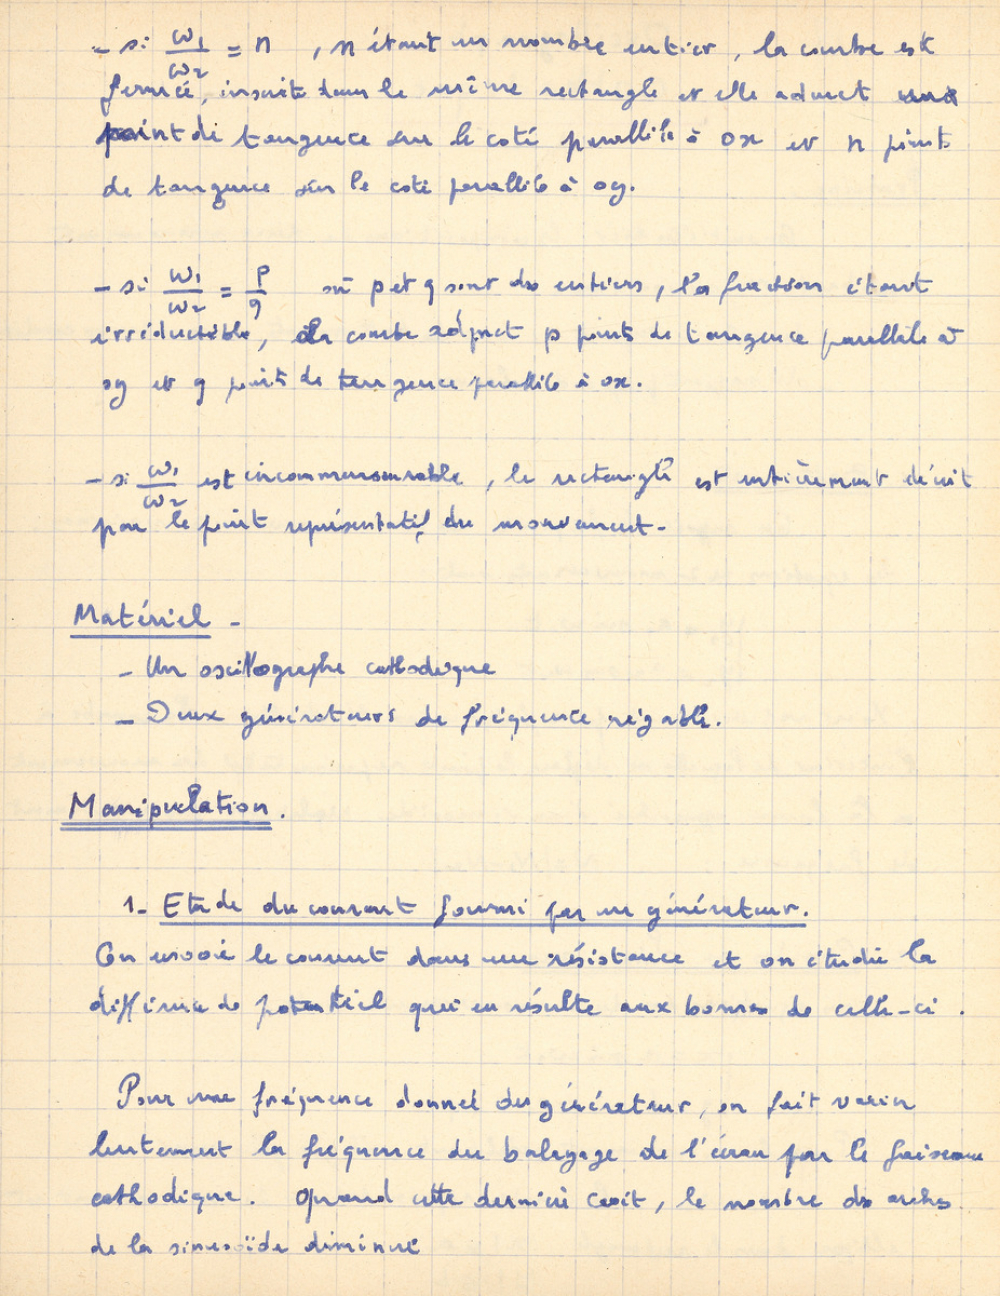 - si ω1/ω2 = n , n étant un nombre entier, la courbe est
fermée, inscrite dans le même rectangle et elle admet un
point de tangence sur le coté parallèle à ox et n points
de tangence sur le coté parallèle à oy.
- si ω1/ω2 = p/q où p et q sont des entiers, la fraction étant
irréductible, la courbe admet p points de tangence parallèle à
oy et q points de tangence parallèle à ox.
- si ω1/ω2 est incommensurable, le rectangle est entièrement décrit
par le point représentatif du mouvement-
Matériel -
- Un oscillographe cathodique
- Deux générateurs de fréquence réglable.
Manipulation.
1- Etude du courant fourni par un générateur.
On envoie le courant dans une résistance et on étudie la
différence de potentiel qui en résulte aux bornes de celle-ci.
Pour une fréquence donnée du générateur, on fait varier
lentement la fréquence du balayage de l'écran par le faisceau
cathodique. Quand cette dernière croit, le nombre des arches
de la sinusoïde diminue